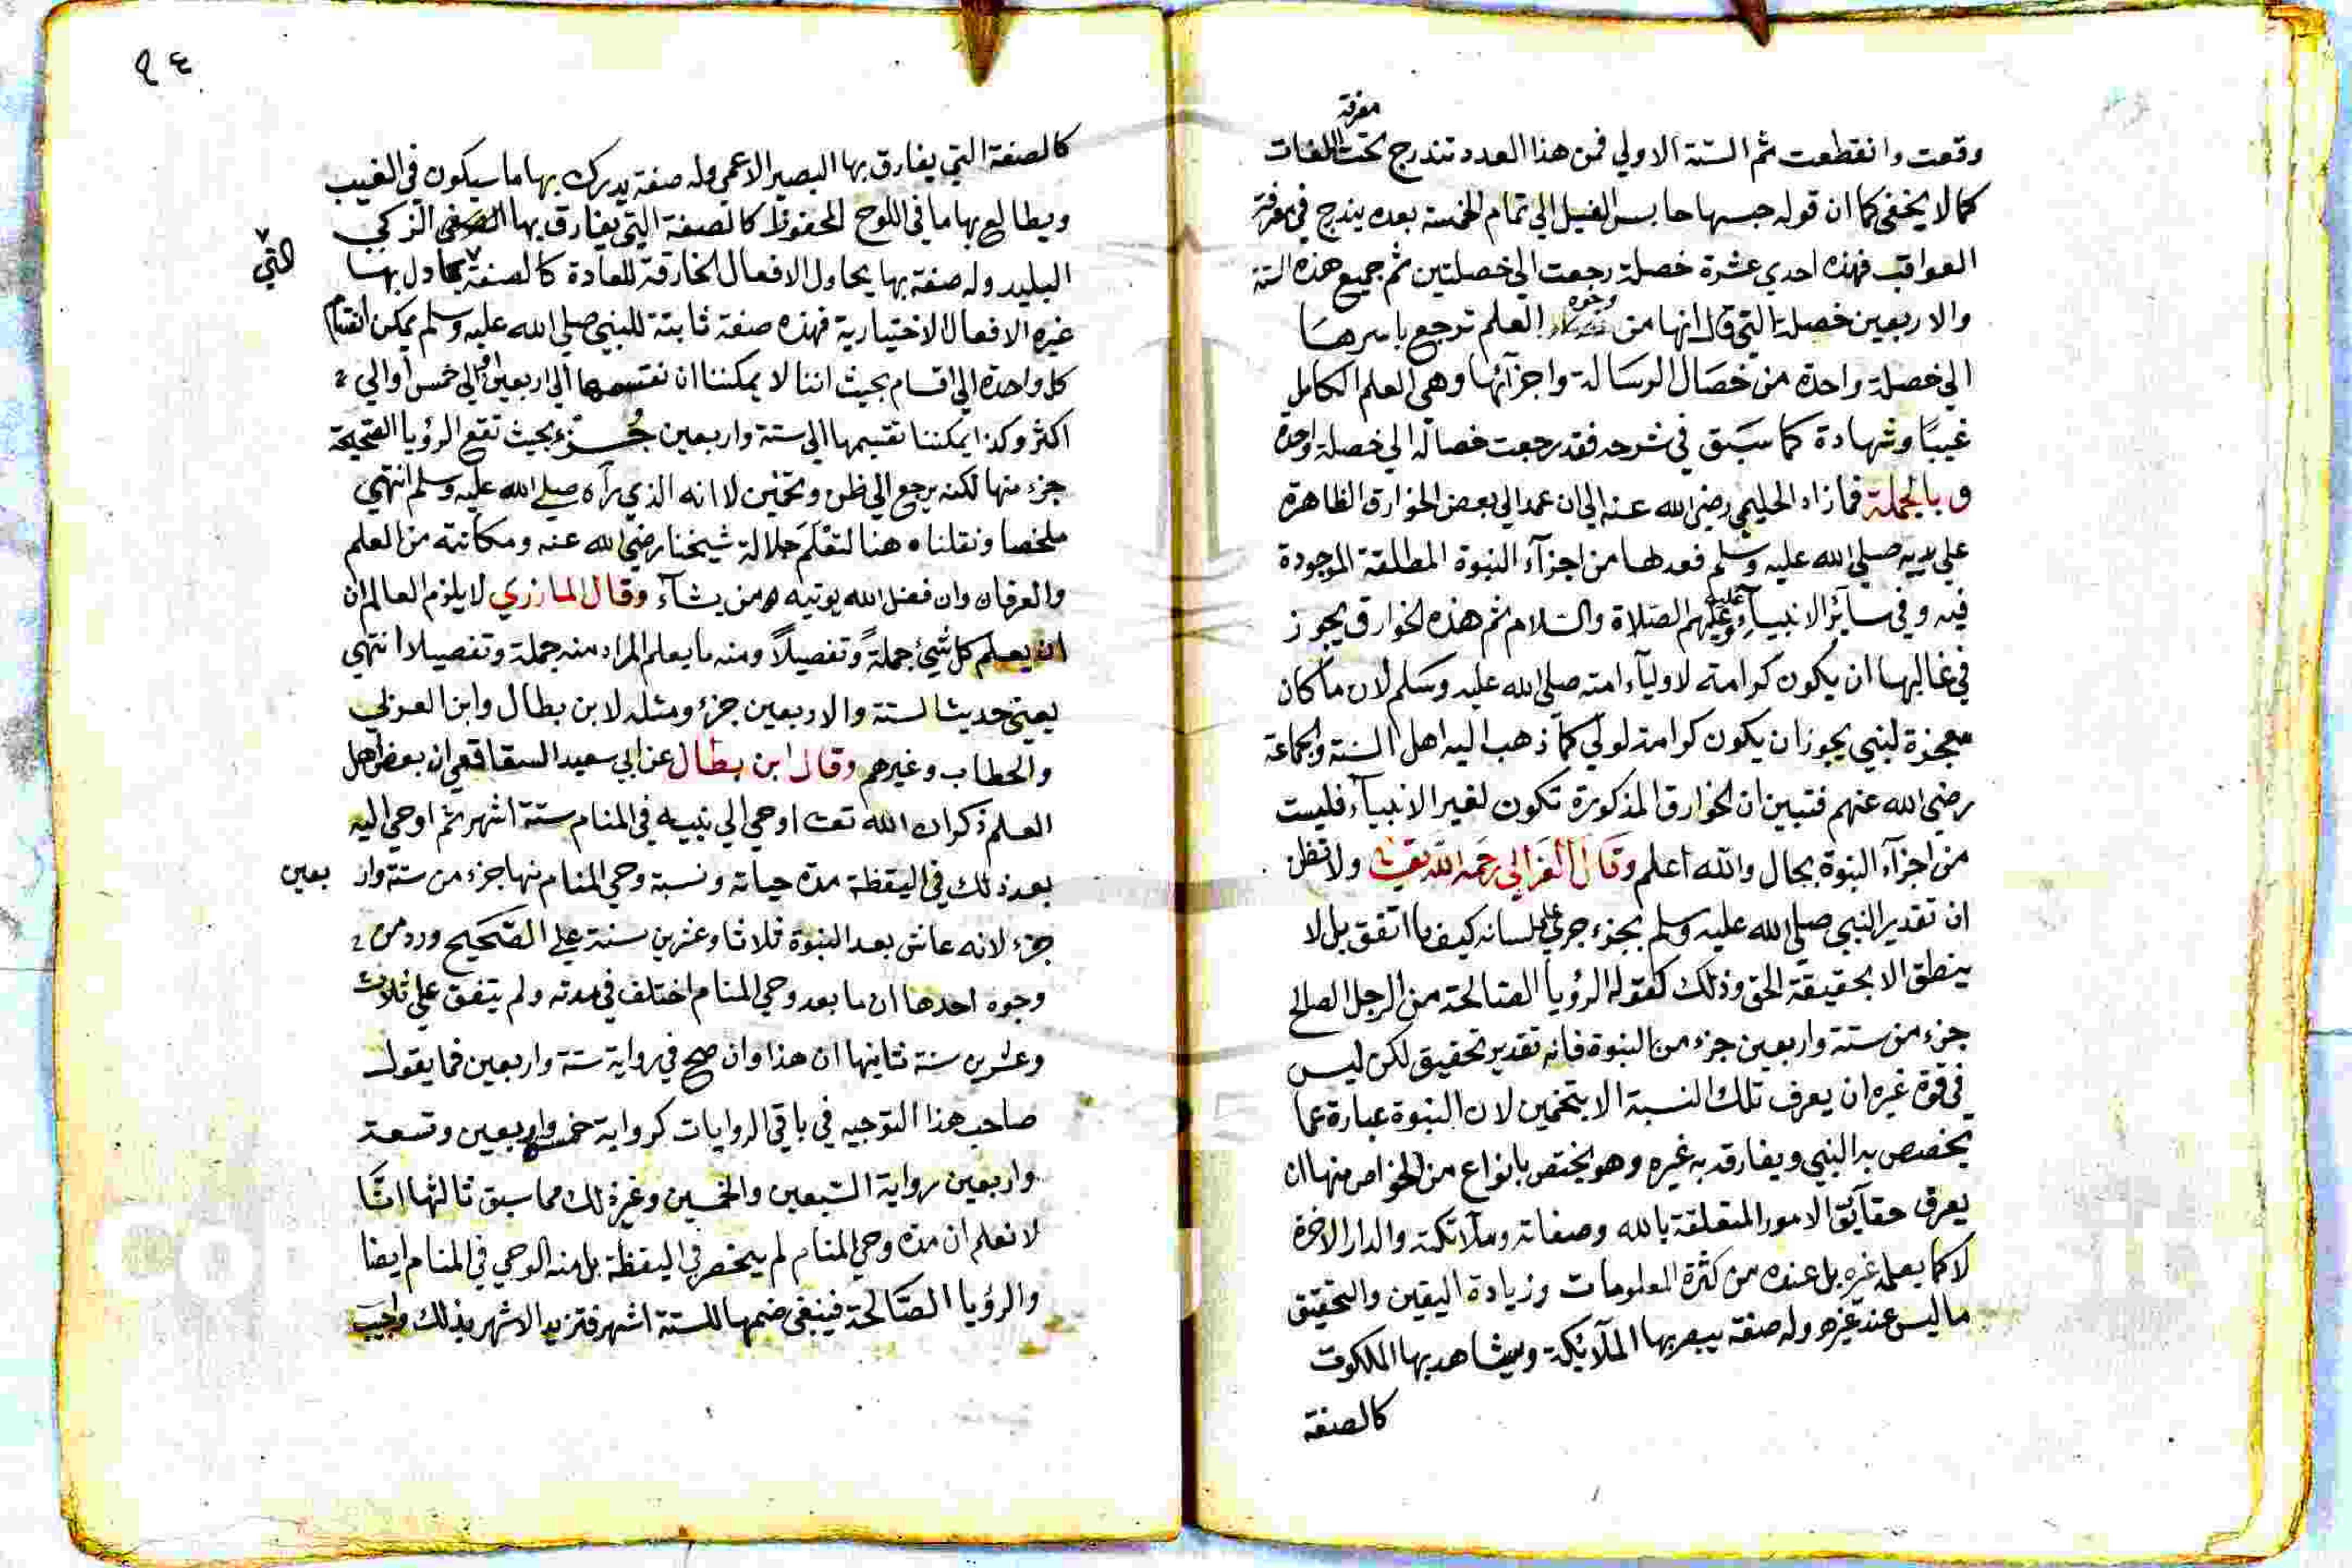 وقعت وانقطعت ثم الستة الاولي فمن هذا العدد تندرج تحت معرفة اللغات
كما لا يخفى كما ان قوله حبسها حابس الفيل الي تمام الخمسة بعده يندرج في معرفة
العواقب فهذه احدي عشرة خصلة رجعت الي خصلتين ثم جميع هذه الستة
والاربعين خصلة التي قال انها من وجوه العلم ترجع باسرها
الي خصلة واحدة من خصال الرسالة واجزآئها وهي العلم الكامل
غيبًا وشهادة كما سبق في شرحه فقد رجعت خصاله الي خصلة واحدة
وبالجملة فما زاد الحليمي رضي الله عنه الي ان عمد الي بعض الخوارق الظاهرة
علي يديه صلي الله عليه وسلم فعدها من اجزآء النبوة المطلقة الموجودة
فيه وفي سآئر الانبيآء عليه وعليهم الصلاة والسلام ثم هذه الخوارق يجوز
في غالبها ان يكون كرامة لاوليآء امته صلي الله عليه وسلم لان ما كان
معجزة لنبي يجوز ان يكون كرامة لولي كما ذهب اليه اهل السنة والجماعة
رضي الله عنهم فتبين ان الخوارق المذكورة تكون لغير الانبيآء فليست
من اجزآء النبوة بحال والله اعلم وقال الغزالي رحمه الله تعالى ولا تظن
ان تقدير النبي صلي الله عليه وسلم بجزء جري علي لسانه كيف ما اتفق بل لا
ينطق الا بحقيقة الحق وذلك كقوله الرؤيا الصالحة من الرجل الصالح
جزء من ستة واربعين جزء من النبوة فانه تقدير تحقيق لكن ليس
في قوة غيره ان يعرف تلك النسبة الا بتخمين لان النبوة عبارة عما
يختص به النبي ويفارق به غيره وهو يختص بانواع من الخواص منها ان
يعرف حقآئق الامور المتعلقة بالله وصفاته وملآئكته والدار الاخرة
لا كما يعلمه غيره بل عنده من كثرة المعلومات وزيادة اليقين والتحقيق
ما ليس عند غيره وله صفة يبصر بها الملآئكة ويشاهد بها الملكوت
كالصفة
٩٤
كالصفة التي يفارق بها البصير الاعمي وله صفة يدرك بها ما سيكون في الغيب
ويطالع بها ما في اللوح المحفوظ كالصفة التي يفارق بها الزكي
البليد وله صفة بها يحاول الافعال الخارقة للعادة كالصفة التي يحاول بها
غيره الافعال الاختيارية فهذه صفة ثابتة للنبي صلي الله عليه وسلم يمكن انقسام
كل واحدة الي اقسام بحيث اننا لا يمكننا ان نقسمها الي اربعين او الي خمس او الي
اكثر وكذا يمكننا تقسيمها الي ستة واربعين جُزء بحيث تقع الرؤيا الصحيحة
جزء منها لكنه يرجع الي ظن وتخمين لا انه الذي رآه صلي الله عليه وسلم انتهي
ملخصا ونقلناه هنا لتعلم جلالة شيخنا رضي الله عنه ومكانته من العلم
والعرفان وان فضل الله يوتيه من يشآء وقال المازري لا يلزم العالم ان
ان يعلم كل شيء جملةً وتفصيلاً ومنه ما يعلم المراد منه جملة وتفصيلا انتهى
يعني حديث الستة والاربعين جزء ومثله لابن بطال وابن العربي
والخطاب وغيرهم وقال ابن بطال عن ابي سعيد السفاقصي ان بعض اهل
العلم ذكر ان الله تعالى اوحي الي نبيه في المنام ستة اشهر ثم اوحي اليه
بعد ذلك في اليقظة مدة حياته ونسبة وحي المنام منها جزء من ستة واربعين
جزء لانه عاش بعد النبوة ثلاثا وعشرين سنة علي الصحيح ورد من
وجوه احدها ان ما بعد وحي المنام اختلف في مدته ولم يتفق علي ثلاث
وعشرين سنة ثانيها ان هذا وان صح في رواية ستة واربعين فما يقول
صاحب هذا التوجيه في باقي الروايات كرواية خمس واربعين وتسعة
واربعين رواية السبعين والخمسين وغير ذلك مما سبق ثالثها انَّا
لا نعلم ان مدة وحي المنام لم ينحصر في اليقظة بل منه الوحي في المنام ايضا
والرؤيا الصالحة فينبغي ضمها للستة اشهر فتزيد الاشهر بذلك واجيب